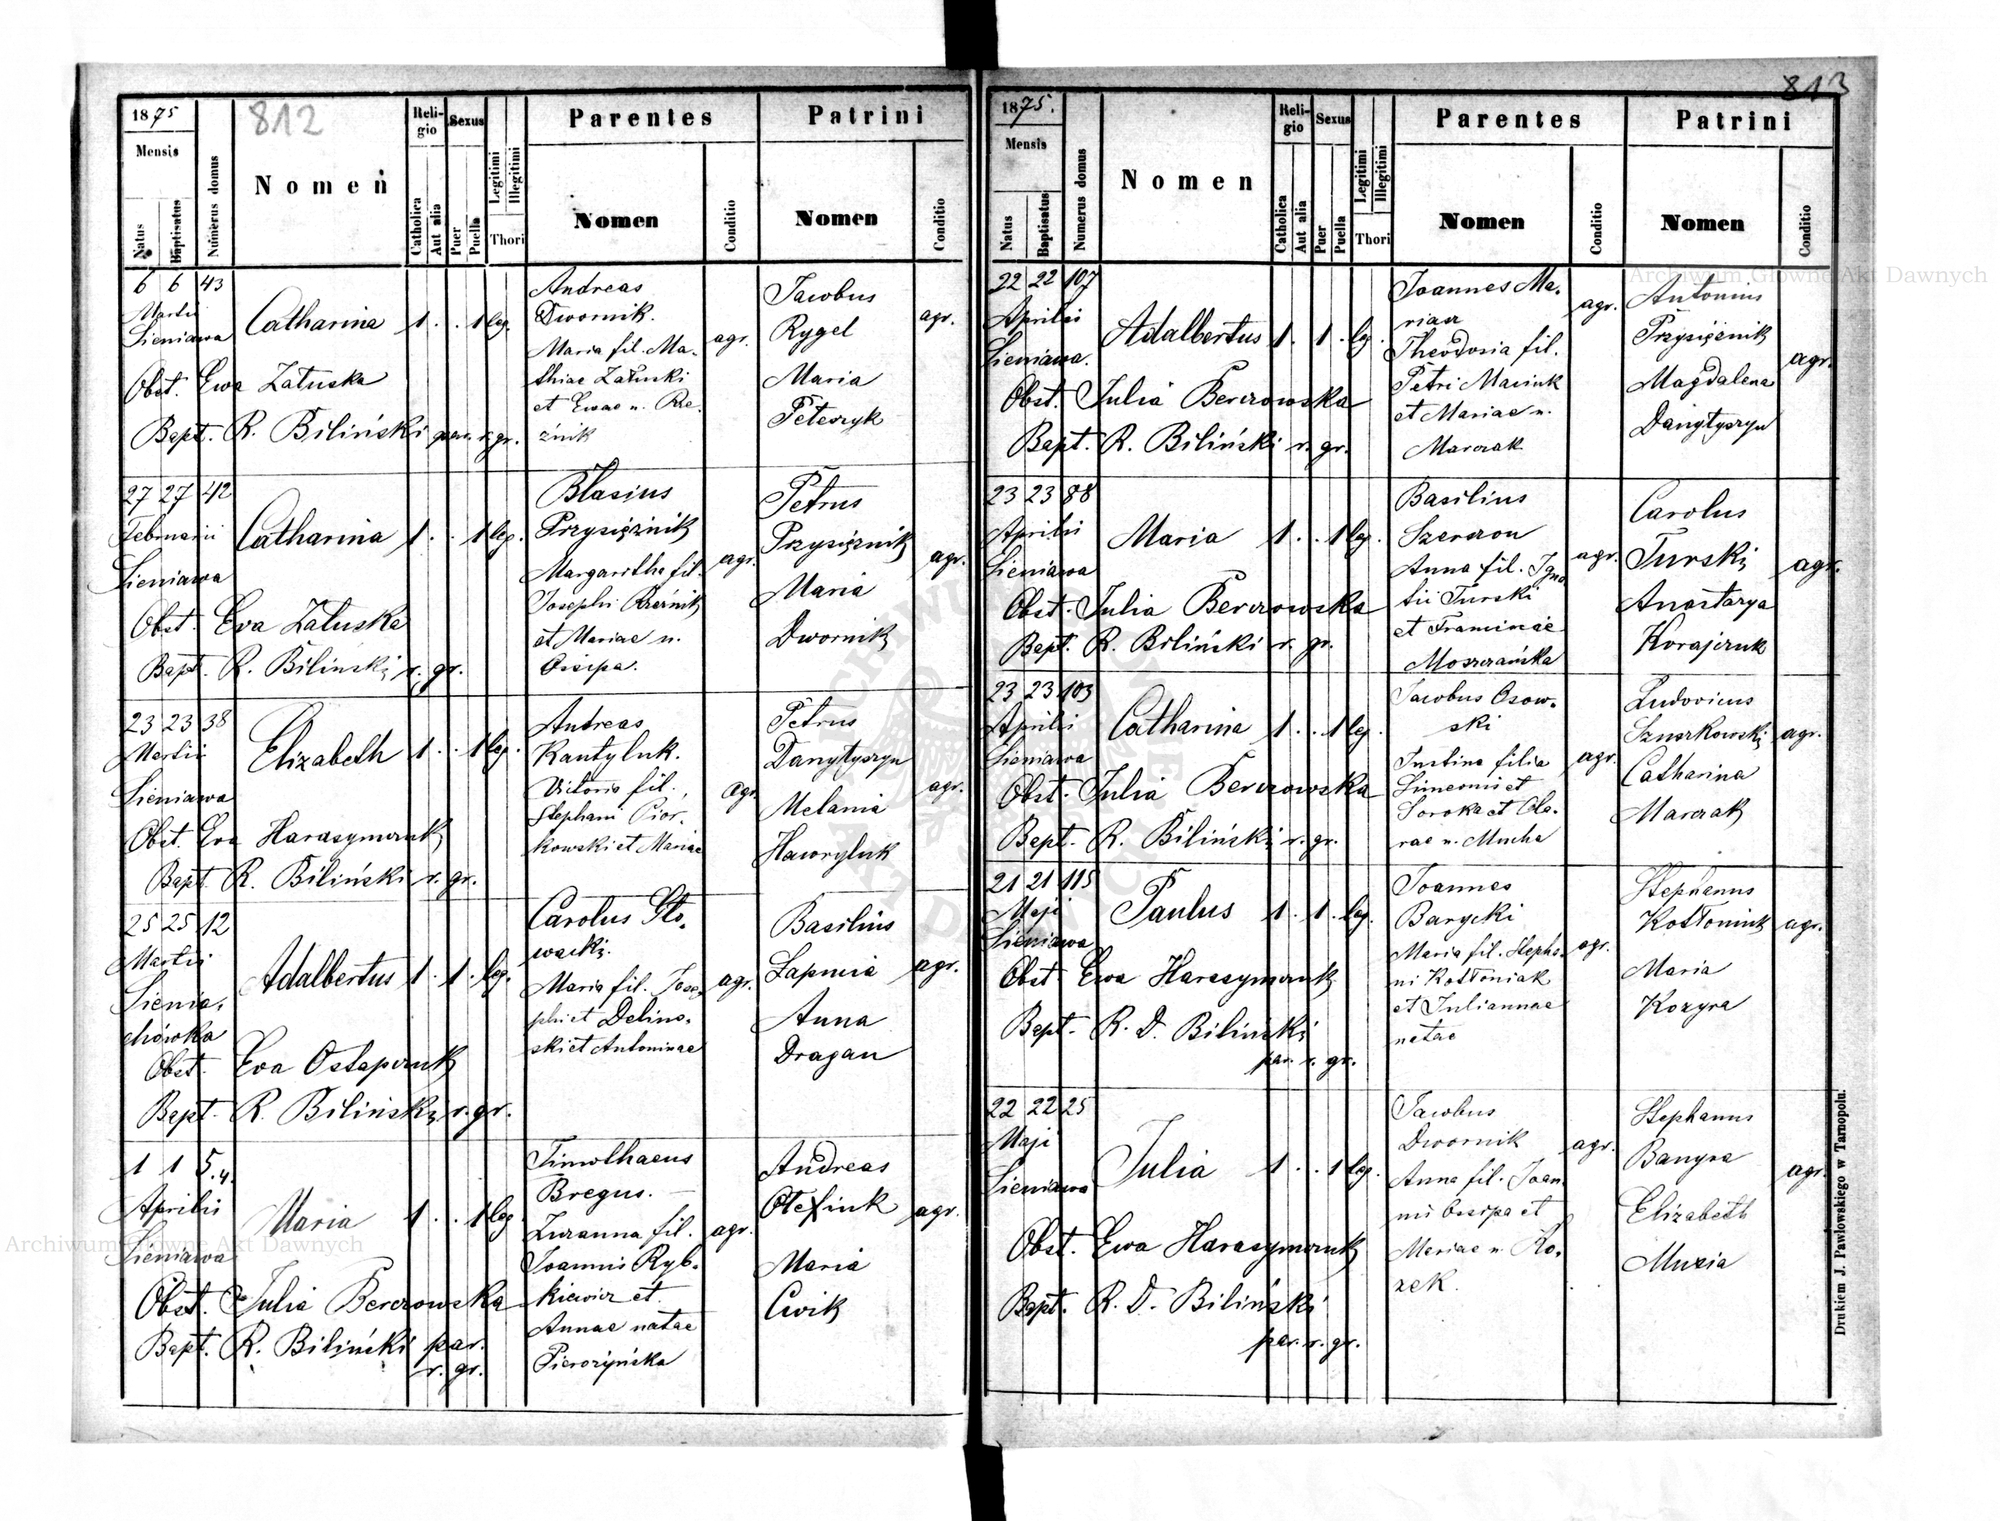 812
1875
Mensis
Natus
Baptisatus
Numerus domus
Nomen
Religio
Catholica
Aut alia
Sexus
Puer
Puella
Legitimi
Illegitimi
Thori
Parentes
Nomen
Conditio
Patrini
Nomen
Conditio
6 6 43
Martii
Sieniawa
Catharina 1 . . 1 leg.
Andreas
Dwornik.
Maria fil. Ma-
thiae Załuski
et Ewae n. Rze-
źnik
agr.
Jacobus
Rygel
Maria
Peteszyk
agr.
Obst. Ewa Załuska
Bapt. R. Biliński par. r. gr.
27 27 42
Februarii
Sieniawa
Catharina 1 . . 1 leg.
Blasius
Przysiężnik
Margaritha fil.
Josephi Rzeźnik
et Mariae n.
Ossipa.
agr.
Petrus
Przysiężnik
Maria
Dwornik
agr.
Obst. Eva Załuska
Bapt. R. Biliński r. gr.
23 23 38
Martii
Sieniawa
Elizabeth 1 . . 1 leg.
Andreas
Kantyluk.
Victoria fil.
Stephani Pior-
kowski et Mariae
agr.
Petrus
Danytyszyn
Melania
Hawryluk
agr.
Obst. Eva Harasymczuk
Bapt. R. Biliński r. gr.
25 25 12
Martii
Sienia-
chówka
Adalbertus 1 . 1 . leg.
Carolus Sło-
wacki.
Maria fil. Jose-
phi et Delino-
ski et Antoninae
agr.
Basilius
Łapucia
Anna
Dragan
agr.
Obst. Eva Ostapczuk
Bapt. R. Biliński r. gr.
1 1 5.4.
Aprilis
Sieniawa
Maria 1 . . 1 leg
Timothaeus
Bregus.
Zuzanna fil.
Joannis Ryb-
kiewicz et
Annae natae
Pierożyńska
agr.
Andreas
Olexiuk
Maria
Cwik
agr.
Obst. Julia Berezowska
Bapt. R. Biliński par.
r. gr.
813
1875.
Mensis
Natus
Baptisatus
Numerus domus
Nomen
Religio
Catholica
Aut alia
Sexus
Puer
Puella
Legitimi
Illegitimi
Thori
Parentes
Nomen
Conditio
Patrini
Nomen
Conditio
22 22 107
Aprilii
Sieniawa.
Adalbertus 1. 1 . leg.
Joannes Ma-
riasz
Theodosia fil.
Petri Maciuk
et Mariae n.
Marczak
agr.
Antonius
Przysiężnik
Magdalena
Danytyszyn
agr.
Obst. Julia Berezowska
Bapt. R. Biliński r. gr.
23 23 88
Aprilii
Sieniawa
Maria 1 . . 1 leg.
Basilius
Szerszon
Anna fil. Igna
tii Turski
et Franciscae
Moszczańska
agr.
Carolus
Turski
Anastazya
Korajczuk
agr.
Obst. Julia Berezowska
Bapt. R. Biliński r. gr.
23 23 103
Aprilii
Sieniawa
Catharina 1 . . 1 leg.
Jacobus Osow-
ski
Justina filia
Simeonis et
Soroka et Cla-
rae n. Mucha
agr.
Ludovicus
Sznurkowski
Catharina
Marczak
agr.
Obst. Julia Berezowska
Bapt. R. Biliński r. gr.
21 21 115
Maji
Sieniawa
Paulus 1 . 1 . leg.
Joannes
Barycki
Maria fil. Stepha-
ni Kostoniak
et Juliannae
natae
agr.
Stephanus
Kostoniuk
Maria
Kozyra
agr.
Obst. Ewa Harasymczuk
Bapt. R. D. Biliński
par. r. gr.
22 22 25
Maji
Sieniawa
Julia 1 . . 1 leg.
Jacobus
Dwornik
Anna fil. Joan-
nis Ossipa et
Mariae n. Ko-
zek.
agr.
Stephanus
Banyra
Elizabeth
Muzia
agr.
Obst. Ewa Harasymczuk
Bapt. R. D. Biliński
par. r. gr.
Drukiem J. Pawłowskiego w Tarnopolu.
Archiwum Główne Akt Dawnych
Archiwum Główne Akt Dawnych